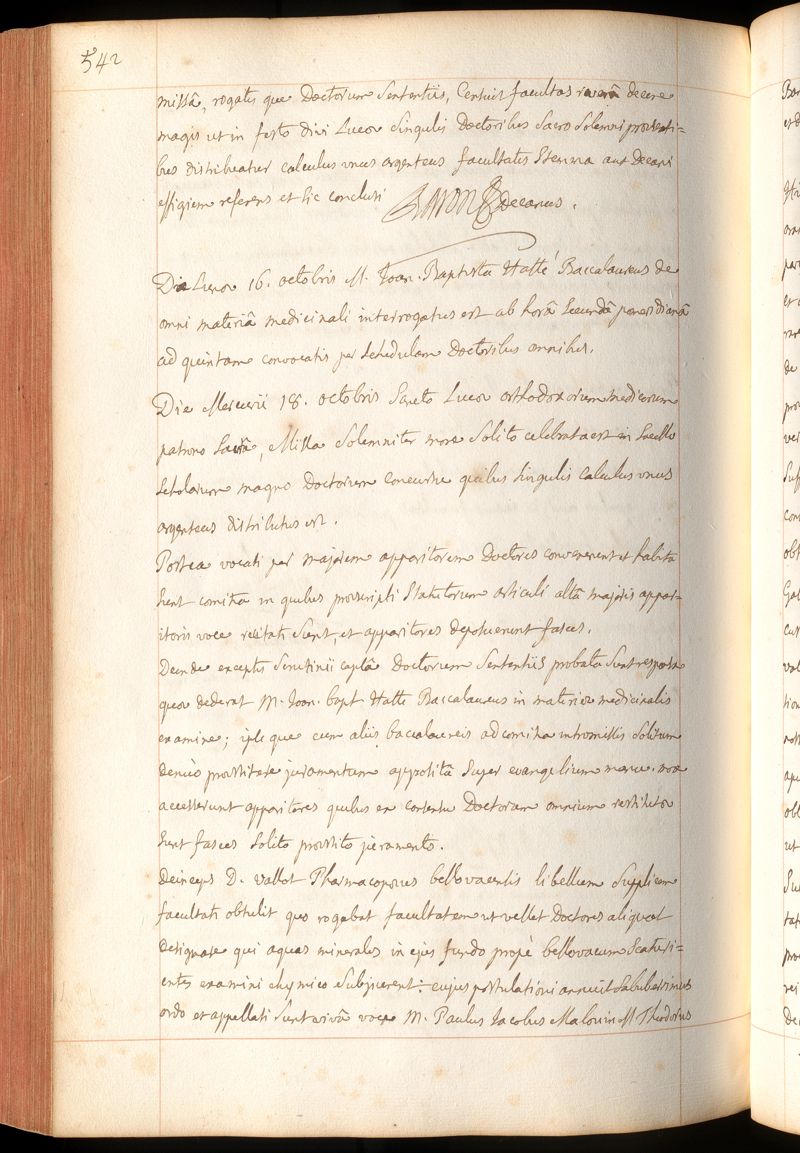 542
missâ, rogatisque Doctorum Sententiis, Censuit facultas reverâ decere
magis ut in festo divi Lucæ Singulis Doctoribus Sacro Solemni præsenti=
bus distribueatur calculus unus argenteus facultatis Stemma aut Decani
effigiem referens et sic conclusi BARON decanus.
Die Lunæ 16. octobris M. Joan. Baptista Hatté Baccalaureus de
omni materiâ medicinali interrogatus est ab horâ Secundâ pomeridianâ
ad quintam convocatis per schedulam Doctoribus omnibus.
Die Mercurii 18. octobris Sancto Lucæ orthodoxorum medicorum
patrono Sacrâ, Missa Solemniter more Solito celebrata est in Sacello
scholarum magno Doctorum concursu quibus singulis calculus unus
argenteus distributus est.
Postea vocati per majorem apparitorem Doctores convenerunt et habita
sunt comitia in quibus præscripti Statutorum articuli altâ majoris appar=
itoris voce recitati sunt, et apparitores deposuerunt fasces.
Deinde exceptis Scrutinii capsâ Doctorum Sententiis probata sunt responsa
quæ dederat M. Joan. bapt Hatté Baccalaureus in materiæ medicinalis
examine; ipseque cum aliis baccalaureis ad comitia intromissis Solitum
denuò præstitere juramentum appositâ Super evangelium manu. mox
accesserunt apparitores quibus ex consensu Doctorum omnium restituti
sunt fasces Solito præstito juramento.
Deinceps D. vallot Pharmacopæus bellovacensis libellum Supplicem
facultati obtulit quo rogabat facultatem ut vellet Doctores aliquot
designare qui aquas minerales in ejus fundo propè bellovacum Scaturi=
entes examini chymico Subjicerent: cujus postulationi annuit Saluberrimus
ordo et appellati Sunt vivâ voce M. Paulus Jacobus Malouin M Theodorus